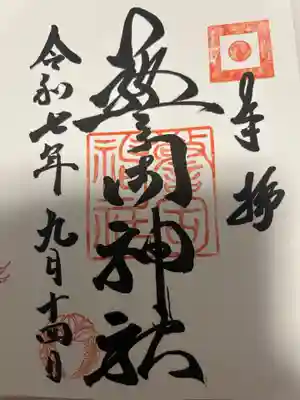 奉拝
警固神社
令和七年九月十四日